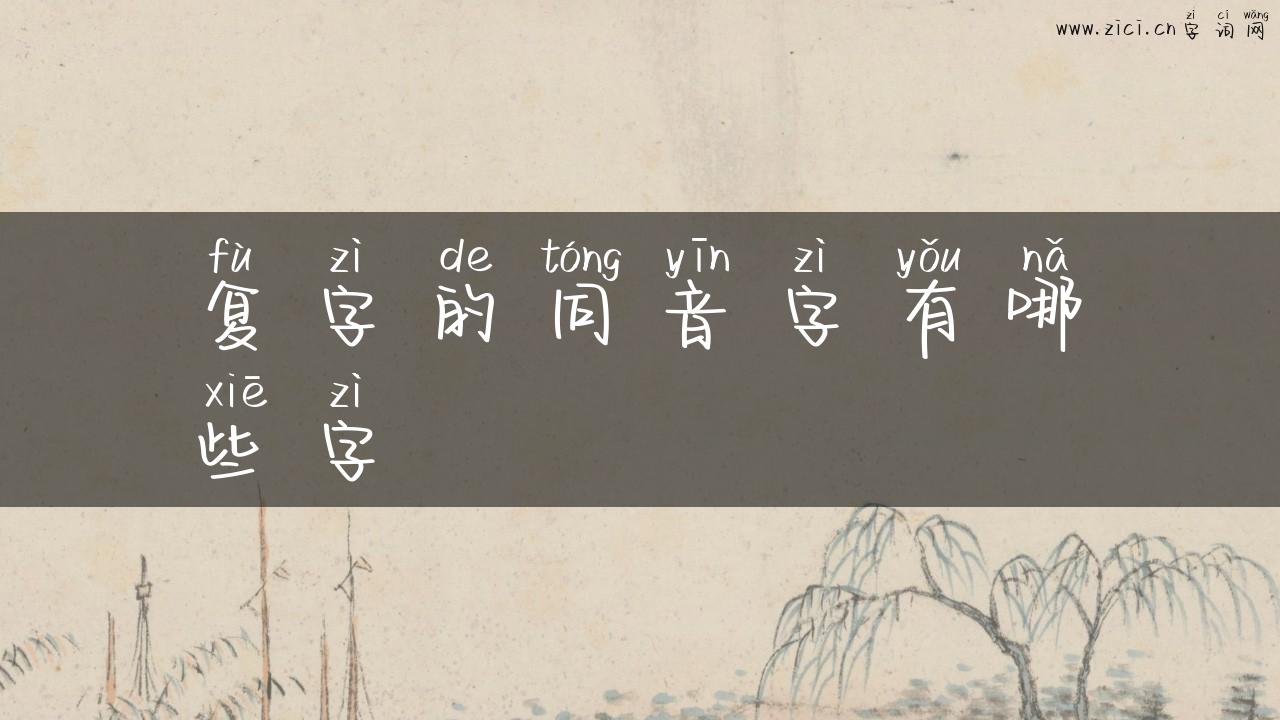 zì cí wǎng
www.zici.cn字词网
fù zì de tóng yīn zì yǒu nǎ
复字的同音字有哪
xiē zì
些字